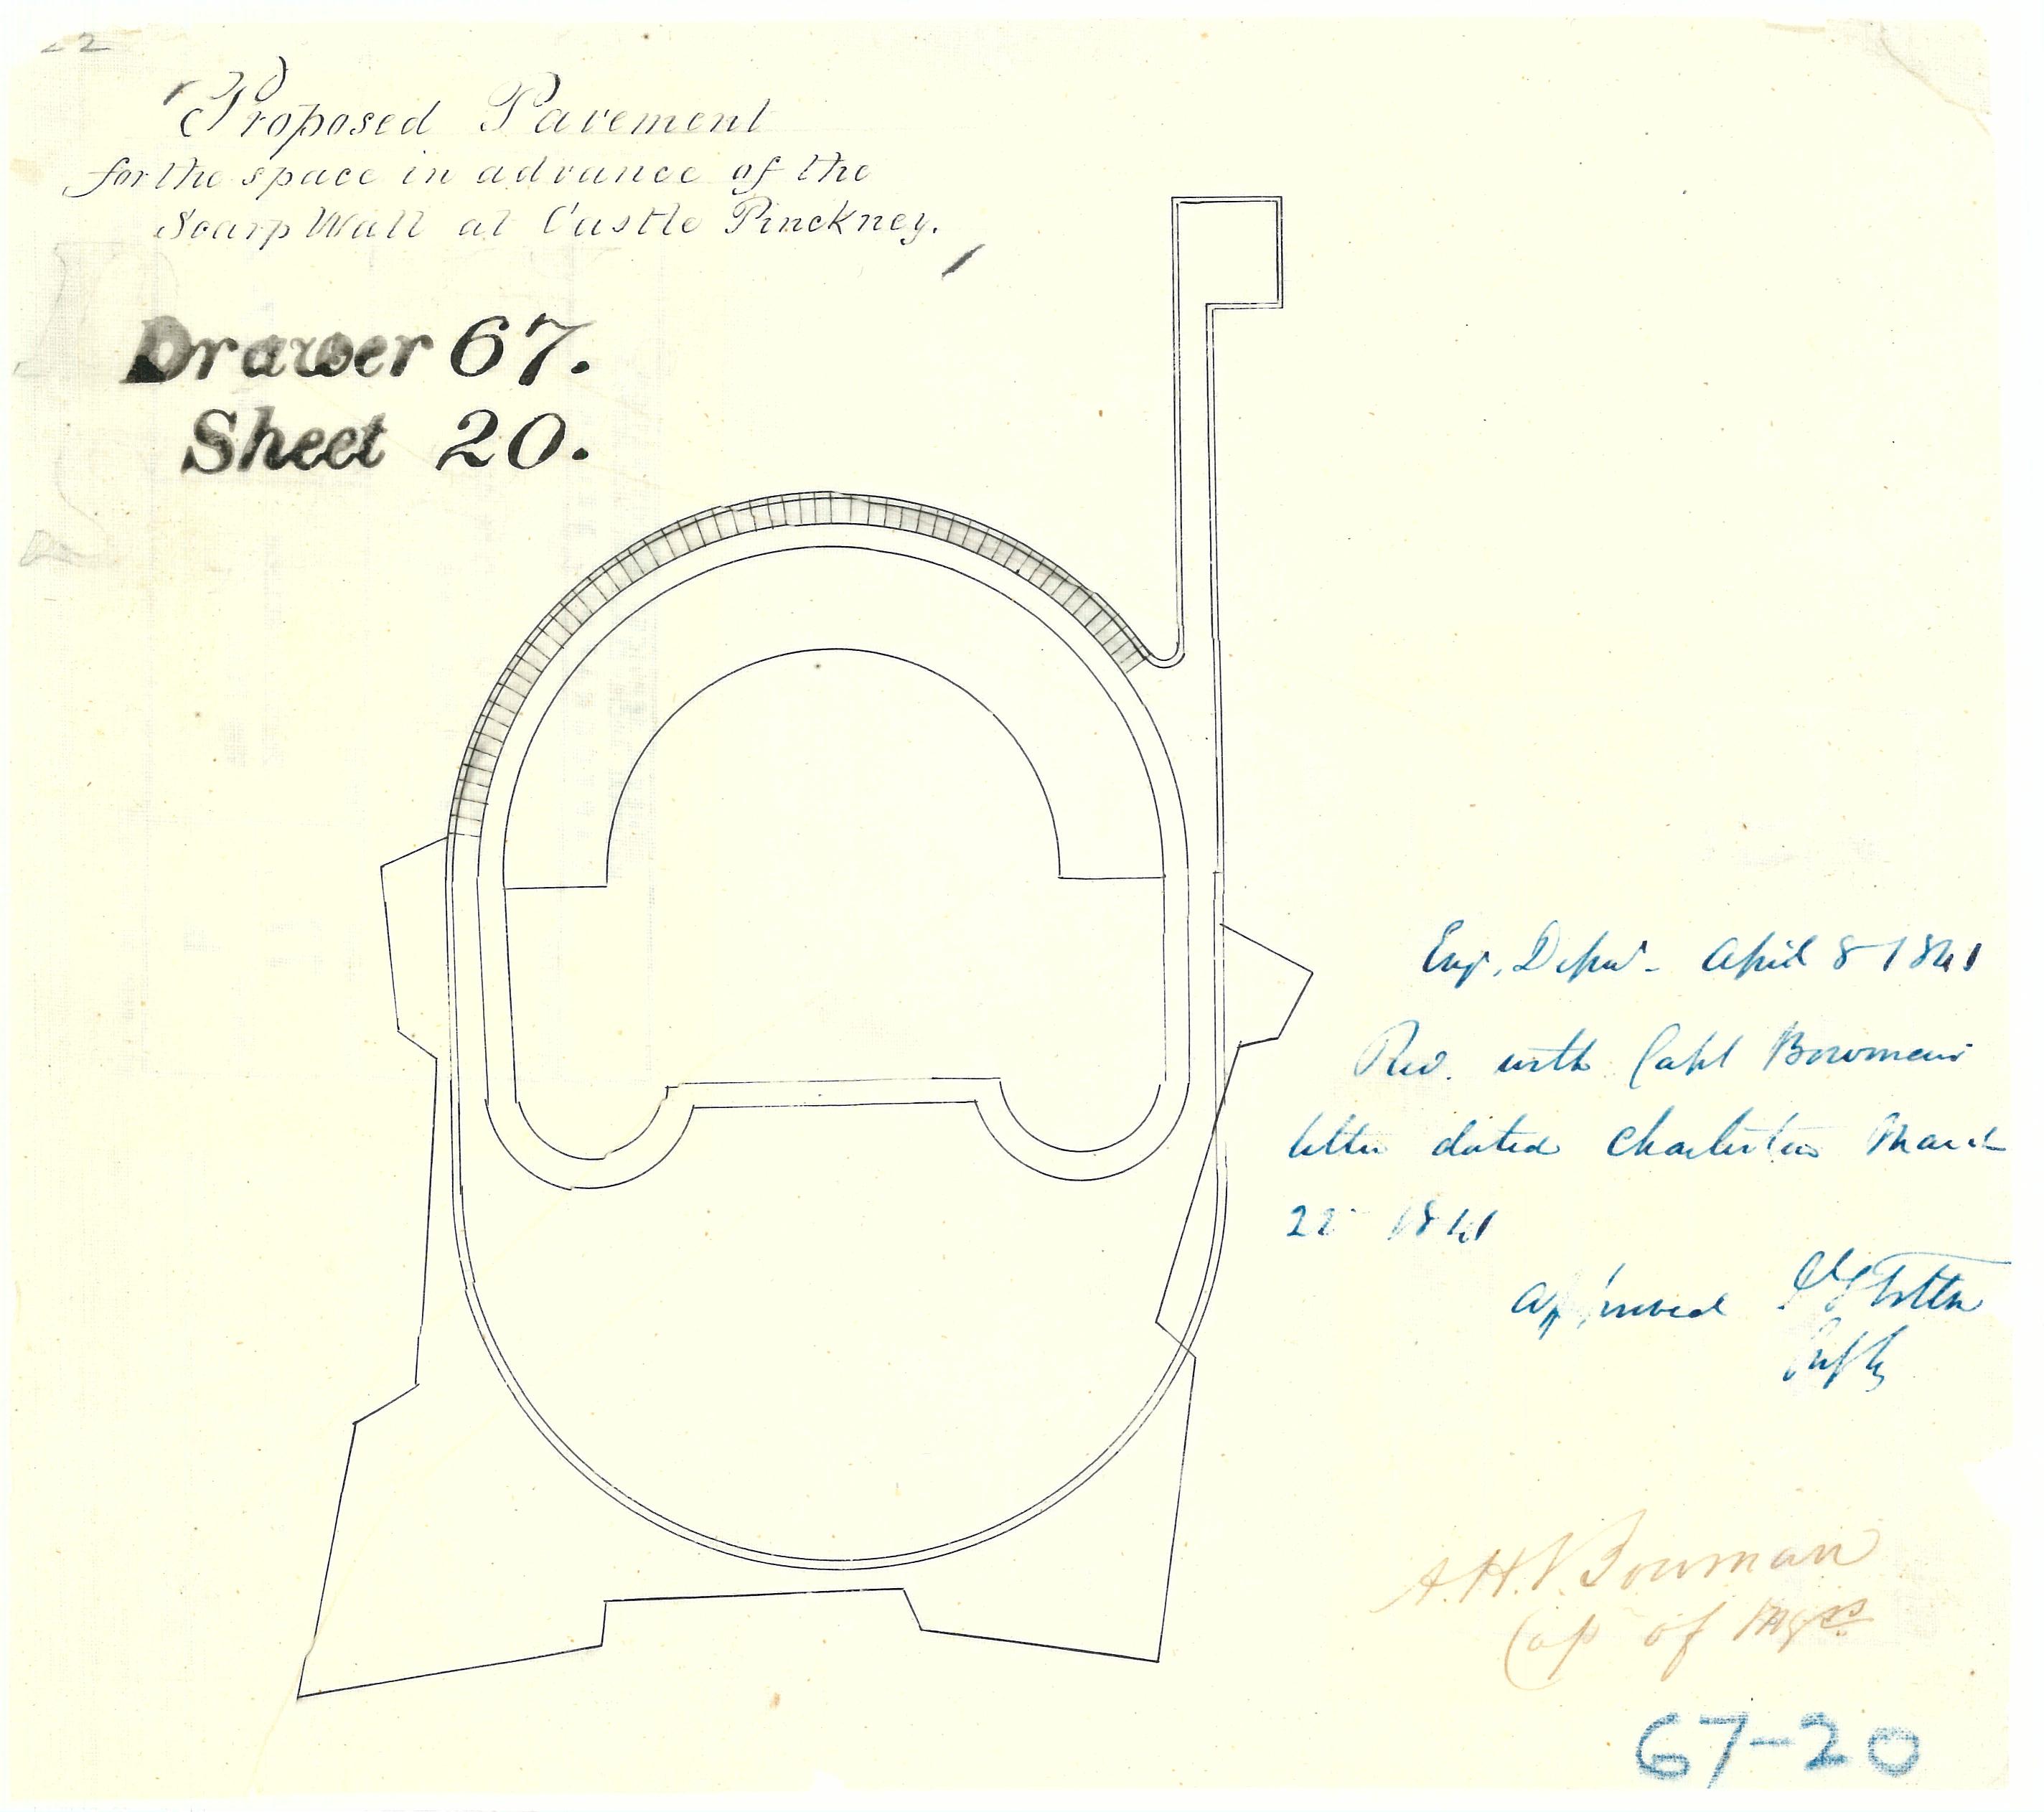 22
Proposed Pavement
for the space in advance of the
Scarp Wall at Castle Pinckney.
Drawer 67.
Sheet 20.
Eng. Depmt. April 8 1841
Red. with Capt Bowman's
letter dated Charleston March
22 1841
Approved J G Totten
A. H. Bowman
Cap of Engrs
67-20